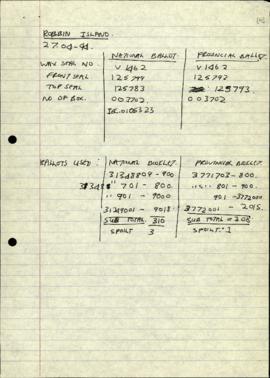 ROBBIN ISLAND.
27.04.94.
NATIONAL BALLOT PROVINCIAL BALLOT.
WAX SEAL NO. V 1462 V 1462
FRONT SEAL 125799 125792
TOP SEAL 125783 125793.
NO OF BOX. 003702. 003702
BALLOTS USED: NATIONAL BOOKLET. PROVINCIAL BOOKLET.
31348809 - 900 3771703 - 800.
" 701 - 800. 801 - 900.
" 901 - 9000 901 - 3772000
31249001 - 9018 3772001 - 2015.
SUB TOTAL 310 SUB TOTAL = 303
SPOILT 3 SPOILT: 1